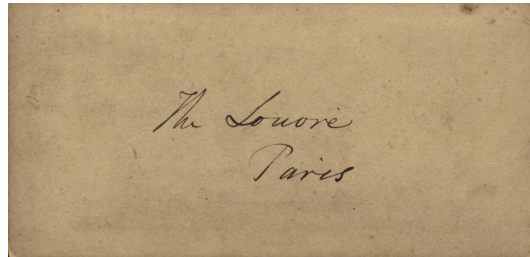 The Louvre
Paris